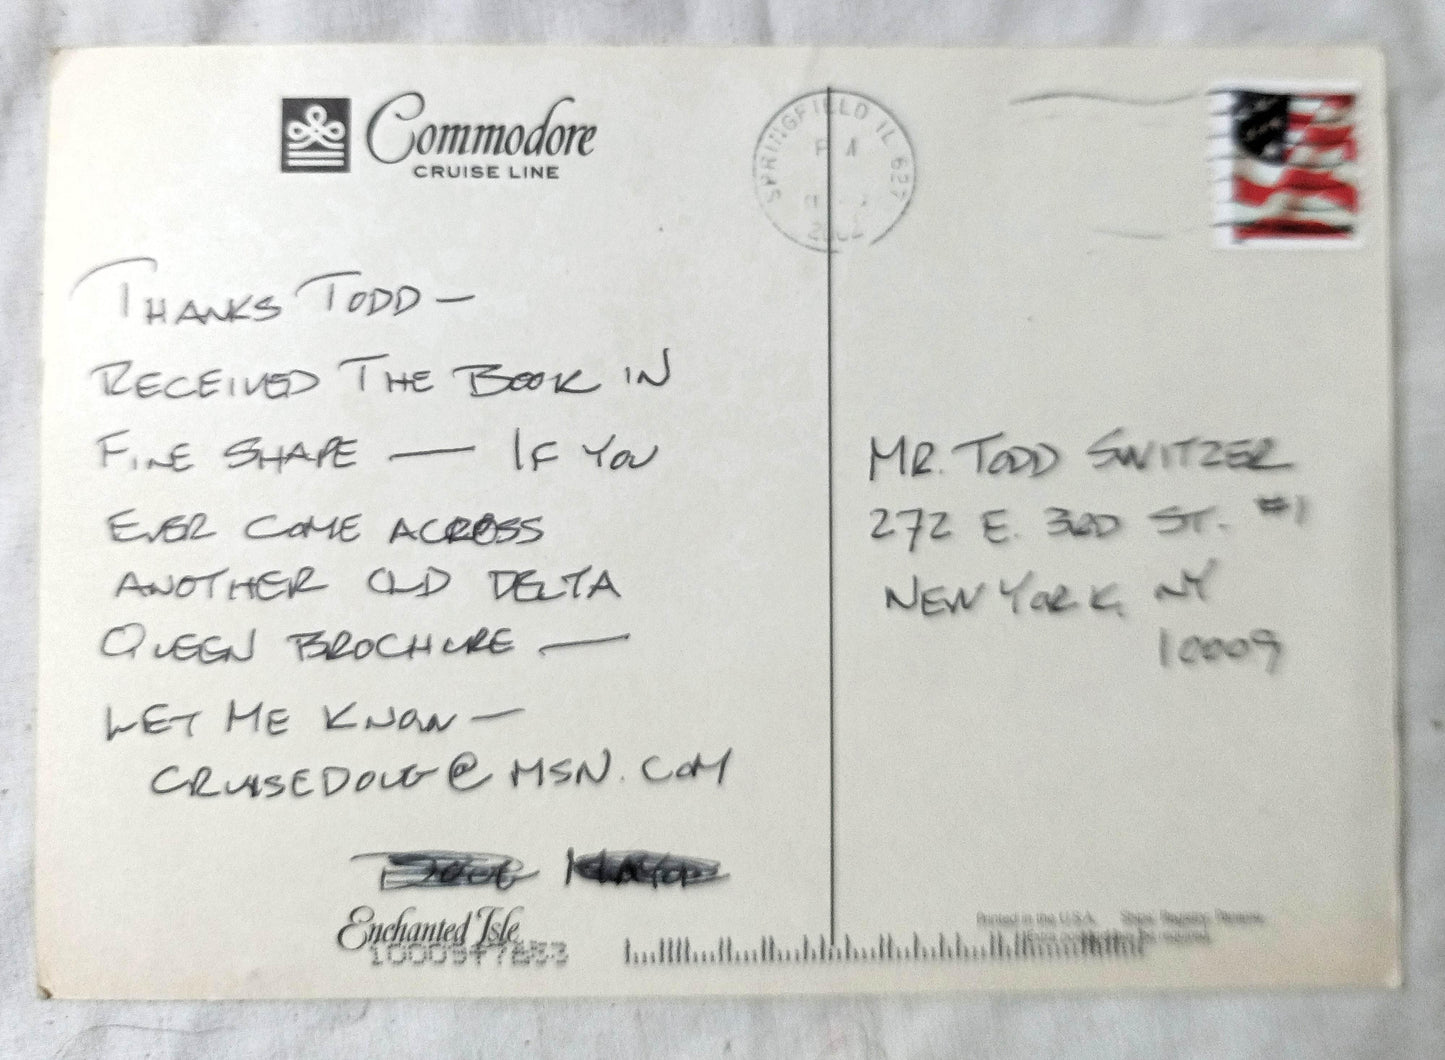 Commodore
CRUISE LINE
SPRINGFIELD IL 627
THANKS TODD —
RECEIVED THE BOOK IN
FINE SHAPE — IF YOU
EVER COME ACROSS
ANOTHER OLD DELTA
QUEEN BROCHURE —
LET ME KNOW —
CRUISEDOUG@MSN.COM
Enchanted Isle
MR. TODD SWITZER
272 E. 3RD ST. #1
NEW YORK, NY
10009
Printed in the U.S.A. Ships' Registry: Panama.